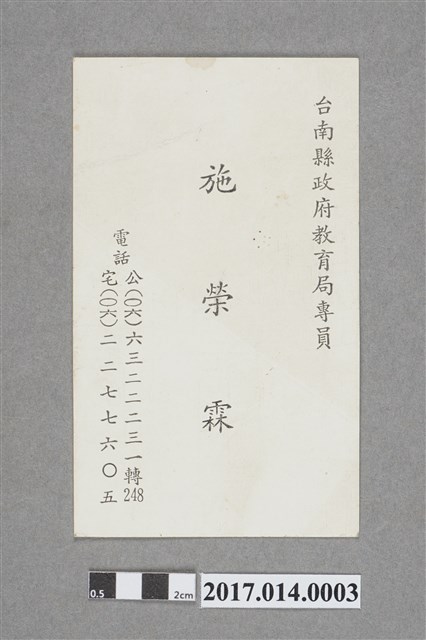 台南縣政府教育局專員
施榮霖
電話
公(〇六)六三二二二三一轉248
宅(〇六)二二七七六〇五
0.5
2cm
2017.014.0003